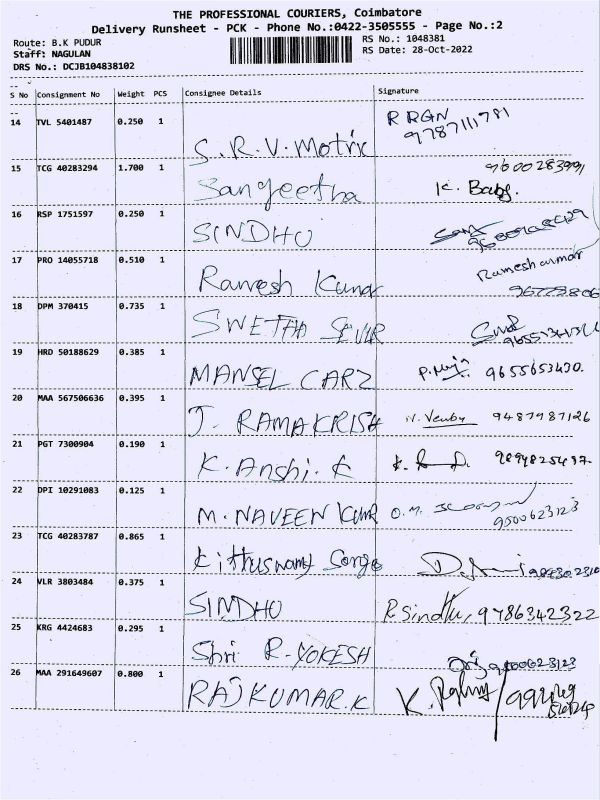 THE PROFESSIONAL COURIERS, Coimbatore
Delivery Runsheet - PCK - Phone No.:0422-3505555 - Page No.:2
Route: B.K PUDUR
RS No.: 1048381
Staff: NAGULAN
RS Date: 28-Oct-2022
DRS No.: DCJB104838102
S No Consignment No Weight PCS Consignee Details Signature
14 TVL 5401487 0.250 1 S.R.V. Matric R RGN
9787111781
15 TCG 40283294 1.700 1 Sangeetha K. Babs. 9600283991
16 RSP 1751597 0.250 1 SINDHU
17 PRO 14055718 0.510 1 Ramesh Kumar Ramesh
18 DPM 370415 0.735 1 SWETHA
19 HRD 50188629 0.385 1 MANSEL CARZ 9655653430.
20 MAA 567506636 0.395 1 J. RAMAKRISH 9487987126
21 PGT 7300904 0.190 1 K. Anshi. K 9894825437
22 DPI 10291083 0.125 1 M. NAVEEN KUMR O.M.
9500623123
23 TCG 40283787 0.865 1 Kittuswamy
24 VLR 3803484 0.375 1 SINDHU R Sindhu, 9786342322
25 KRG 4424683 0.295 1 Shri R. YOKESH 9500623123
26 MAA 291649607 0.800 1 RAJKUMAR.K K.